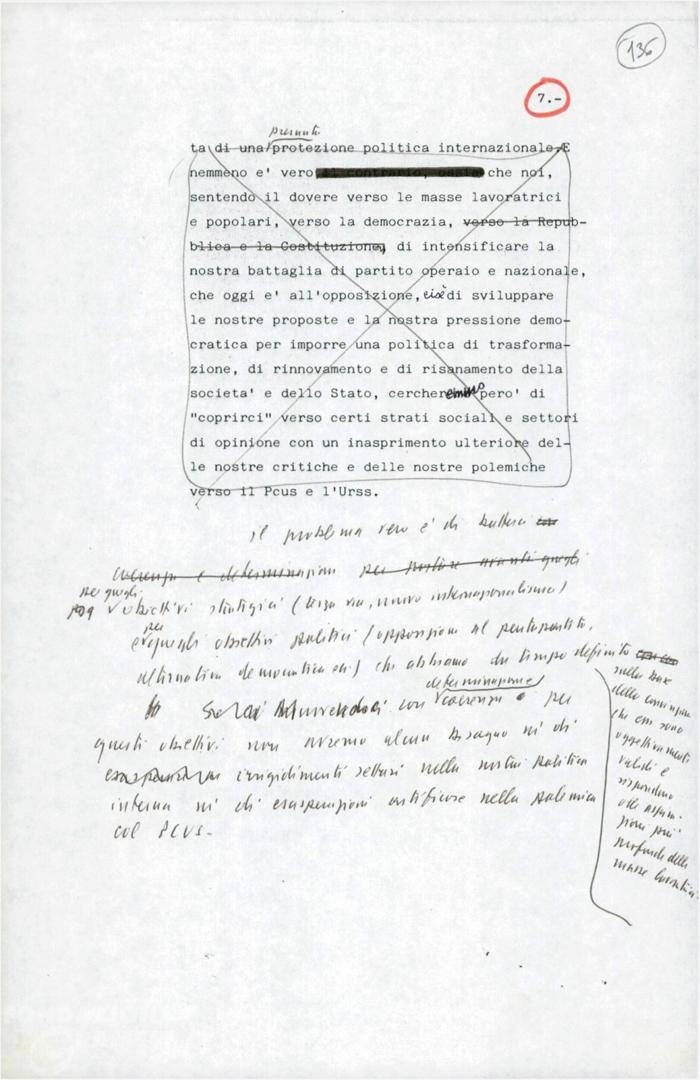 136
7.-
presunta
ta di una protezione politica internazionale. E
nemmeno e' vero il contrario, ossia che noi,
sentendo il dovere verso le masse lavoratrici
e popolari, verso la democrazia, verso la Repub-
blica e la Costituzione, di intensificare la
nostra battaglia di partito operaio e nazionale,
che oggi e' all'opposizione, cioè di sviluppare
le nostre proposte e la nostra pressione demo-
cratica per imporre una politica di trasforma-
zione, di rinnovamento e di risanamento della
societa' e dello Stato, cercheremmo pero' di
"coprirci" verso certi strati sociali e settori
di opinione con un inasprimento ulteriore del-
le nostre critiche e delle nostre polemiche
verso il Pcus e l'Urss.
il problema vero è di batterci con
coerenza e determinazione per portare avanti quegli
per quegli
obiettivi strategici (terza via, nuovo internazionalismo)
per
e quegli obiettivi politici (opposizione al pentapartito,
alternativa democratica ecc) che abbiamo da tempo definito
determinazione
con coerenza e per
questi obiettivi non avremo alcun bisogno né di
irrigidimenti settari nella nostra politica
interna né di esasperazioni artificiose nella polemica
col PCUS-
sulla base
della convinzione
che essi sono
oggettivamente
validi e
rispondono
alle aspira-
zioni più
profonde delle
masse lavoratrici